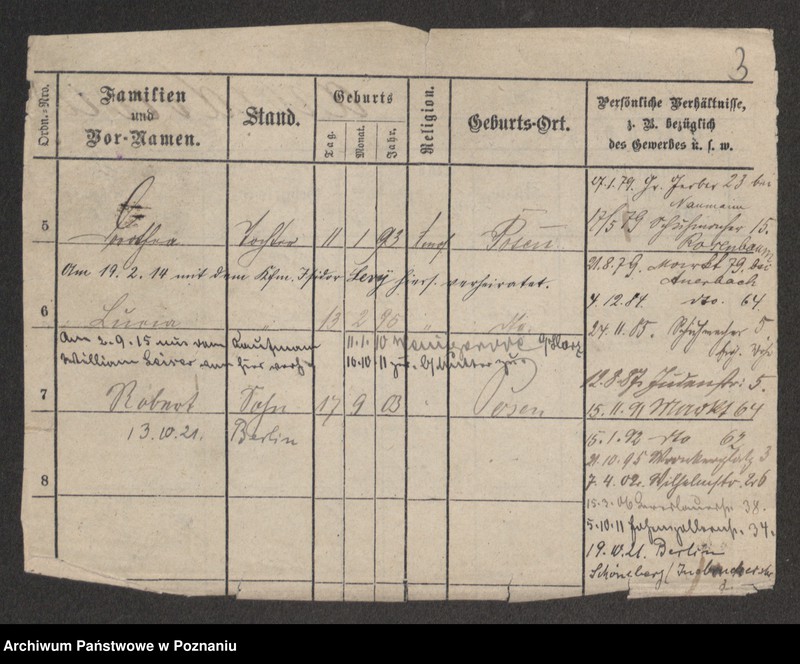 3
Ordn.=Nro.
Familien
und
Vor=Namen.
Stand.
Geburts
Tag.
Monat.
Jahr.
Religion.
Geburts=Ort.
Persönliche Verhältnisse,
z. B. bezüglich
des Gewerbes u. s. w.
5
Tochter 11 1 93 Posen
Am 19. 2. 14 mit dem Kfm. Isidor Levy hiers. verheiratet.
6
13 2 95
Am 2. 9. 15 mit dem Kaufmann
William
11. 1. 10
10. 10. 11 zur. b/ Mutter zur
7
Robert Sohn 17 9 03 Posen
13. 10. 21. Berlin
8
27. 1. 79. Gr. Gerber 23 bei
Naumann
17/5 79 Schuhmacher 15.
Rosenbaum
21. 8. 79. Markt 79. bei
Auerbach
4. 12. 84. dto. 64
24. 11. 85. Schuhmacher 5
12. 8. 87. Judenstr: 5.
15. 11. 91 Markt 64
15. 1. 92 dto 67
21. 10. 95 3
7. 4. 02. Wilhelmstr. 26
15. 3. 06 38.
5. 10. 11 Hohenzollernstr. 34.
19. 10. 21. Berlin
Schöneberg
Archiwum Państwowe w Poznaniu